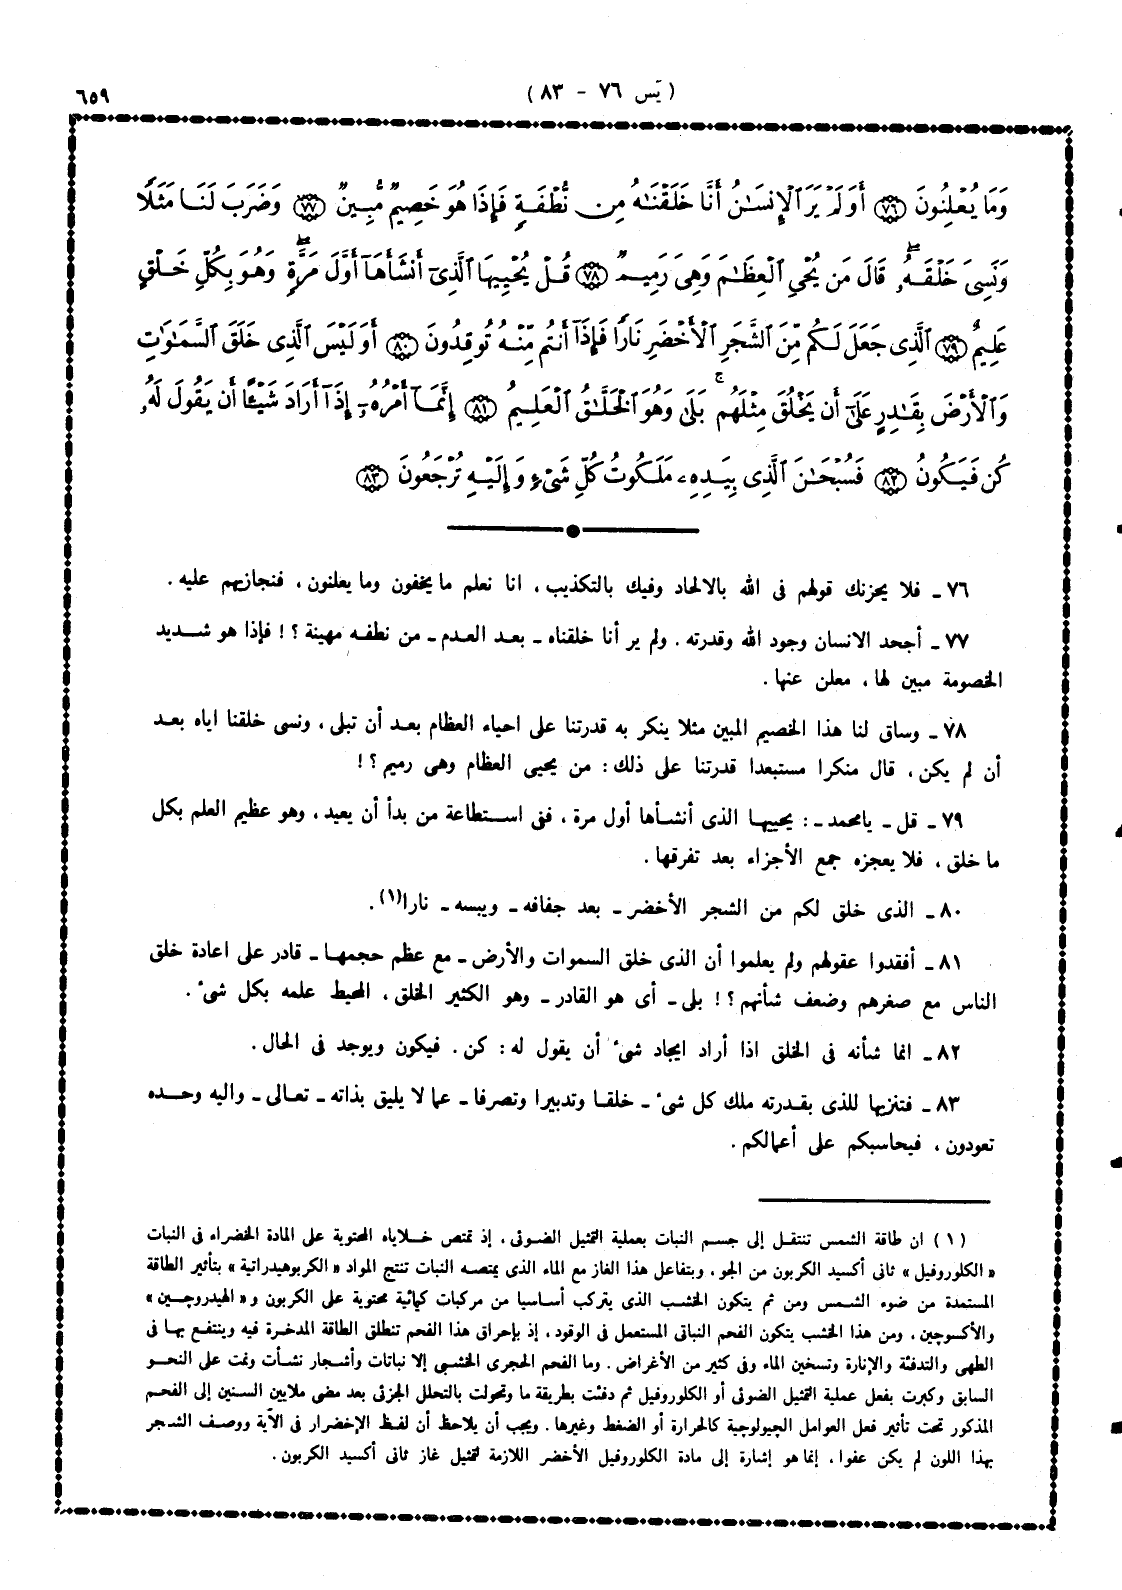 ( يٓس ٧٦ - ٨٣ )
٦٥٩
وَمَا يُعْلِنُونَ ٧٦ أَوَلَمْ يَرَ ٱلْإِنسَٰنُ أَنَّا خَلَقْنَٰهُ مِن نُّطْفَةٍ فَإِذَا هُوَ خَصِيمٌ مُّبِينٌ ٧٧ وَضَرَبَ لَنَا مَثَلًا
وَنَسِىَ خَلْقَهُۥ ۖ قَالَ مَن يُحْىِ ٱلْعِظَٰمَ وَهِىَ رَمِيمٌ ٧٨ قُلْ يُحْيِيهَا ٱلَّذِىٓ أَنشَأَهَآ أَوَّلَ مَرَّةٍ ۖ وَهُوَ بِكُلِّ خَلْقٍ
عَلِيمٌ ٧٩ ٱلَّذِى جَعَلَ لَكُم مِّنَ ٱلشَّجَرِ ٱلْأَخْضَرِ نَارًا فَإِذَآ أَنتُم مِّنْهُ تُوقِدُونَ ٨٠ أَوَلَيْسَ ٱلَّذِى خَلَقَ ٱلسَّمَٰوَٰتِ
وَٱلْأَرْضَ بِقَٰدِرٍ عَلَىٰٓ أَن يَخْلُقَ مِثْلَهُم ۚ بَلَىٰ وَهُوَ ٱلْخَلَّٰقُ ٱلْعَلِيمُ ٨١ إِنَّمَآ أَمْرُهُۥٓ إِذَآ أَرَادَ شَيْـًٔا أَن يَقُولَ لَهُۥ
كُن فَيَكُونُ ٨٢ فَسُبْحَٰنَ ٱلَّذِى بِيَدِهِۦ مَلَكُوتُ كُلِّ شَىْءٍ وَإِلَيْهِ تُرْجَعُونَ ٨٣
٧٦ ـ فلا يحزنك قولهم فى الله بالالحاد وفيك بالتكذيب ، انا نعلم ما يخفون وما يعلنون ، فنجازيهم عليه .
٧٧ ـ أجحد الانسان وجود الله وقدرته . ولم ير أنا خلقناه ـ بعد العدم ـ من نطفه مهينة ؟ ! فإذا هو شديد
الخصومة مبين لها ، معلن عنها .
٧٨ ـ وساق لنا هذا الخصيم المبين مثلا ينكر به قدرتنا على احياء العظام بعد أن تبلى ، ونسى خلقنا اياه بعد
أن لم يكن ، قال منكرا مستبعدا قدرتنا على ذلك : من يحيى العظام وهى رميم ؟ !
٧٩ ـ قل ـ يامحمد ـ : يحييها الذى أنشأها أول مرة ، ففى استطاعة من بدأ أن يعيد ، وهو عظيم العلم بكل
ما خلق ، فلا يعجزه جمع الأجزاء بعد تفرقها .
٨٠ ـ الذى خلق لكم من الشجر الأخضر ـ بعد جفافه ـ ويبسه ـ نارا(١) .
٨١ ـ أفقدوا عقولهم ولم يعلموا أن الذى خلق السموات والأرض ـ مع عظم حجمها ـ قادر على اعادة خلق
الناس مع صغرهم وضعف شأنهم ؟ ! بلى ـ أى هو القادر ـ وهو الكثير الخلق ، المحيط علمه بكل شىء .
٨٢ ـ انما شأنه فى الخلق اذا أراد ايجاد شىء أن يقول له : كن . فيكون ويوجد فى الحال .
٨٣ ـ فتنزيها للذى بقدرته ملك كل شىء ـ خلقا وتدبيرا وتصرفا ـ عما لا يليق بذاته ـ تعالى ـ واليه وحده
تعودون ، فيحاسبكم على أعمالكم .
( ١ ) ان طاقة الشمس تنتقل إلى جسم النبات بعملية التمثيل الضوئى ، إذ تمتص خلاياه المحتوية على المادة الخضراء فى النبات
« الكلوروفيل » ثانى أكسيد الكربون من الجو ، وبتفاعل هذا الغاز مع الماء الذى يمتصه النبات تنتج المواد « الكربوهيدراتية » بتأثير الطاقة
المستمدة من ضوء الشمس ومن ثم يتكون الخشب الذى يتركب أساسيا من مركبات كيمائية محتوية على الكربون و « الهيدروجين »
والأكسوجين ، ومن هذا الخشب يتكون الفحم النباتى المستعمل فى الوقود ، إذ بإحراق هذا الفحم تنطلق الطاقة المدخرة فيه وينتفع بها فى
الطهى والتدفئة والإنارة وتسخين الماء وفى كثير من الأغراض . وما الفحم الحجرى الخشبى إلا نباتات وأشجار نشأت ونمت على النحو
السابق وكبرت بفعل عملية التمثيل الضوئى أو الكلوروفيل ثم دفنت بطريقة ما وتحولت بالتحلل الجزئى بعد مضى ملايين السنين إلى الفحم
المذكور تحت تأثير فعل العوامل الچيولوجية كالحرارة أو الضغط وغيرها . ويجب أن يلاحظ أن لفظ الإخضرار فى الآية ووصف الشجر
بهذا اللون لم يكن عفوا ، إنما هو إشارة إلى مادة الكلوروفيل الأخضر اللازمة لتمثيل غاز ثانى أكسيد الكربون .